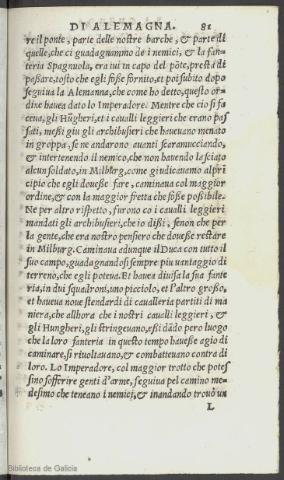 DI ALEMAGNA. 81
re il ponte, parte delle nostre barche, & parte di
quelle, che ci guadagnammo de i nemici, & la fan-
teria Spagnuola, era iui in capo del põte, presta di
passare, tosto che egli fosse fornito, et poi subito dopo
seguiua la Alemanna, che come ho detto, questo or-
dine haueua dato lo Imperadore. Mentre che cio si fa
ceua, gli Hũgheri, et i caualli leggieri che erano pas
sati, meßi giu gli archibusieri che haueuano menato
in groppa, se me andarono auanti scaramucciando,
& intertenendo il nemico, che non hauendo lasciato
alcun soldato, in Milburg, come giudicauamo al pri
cipio che egli douesse fare, caminaua col maggior
ordine, & con la maggior fretta che fosse possibile.
Ne per altro rispetto, furono co i caualli leggieri
mandati gli archibusieri, che io dißi, senon che per
la gente, che era nostro pensiero che douesse restare
in Milburg. Caminaua adunque il Duca con tutto il
suo campo, guadagnandosi sempre piu uantaggio di
terreno, che egli poteua. Et hauea diuisa la sua fante
ria, in dui squadroni, uno picciolo, et l'altro grosso,
et haueua noue stendardi di caualleria partiti di ma
niera, che allhora che i nostri caualli leggieri, &
gli Hungheri, gli stringeuano, eßi dãdo pero luogo
che la loro fanteria in questo tempo hauesse agio di
caminare, si riuoltauano, & combatteuano contra di
loro. Lo Imperadore, col maggior trotto che potes
sino sofferire genti d'arme, seguiua pel camino me-
desimo che teneano i nemici, & inandando trouò un
L
Biblioteca de Galicia